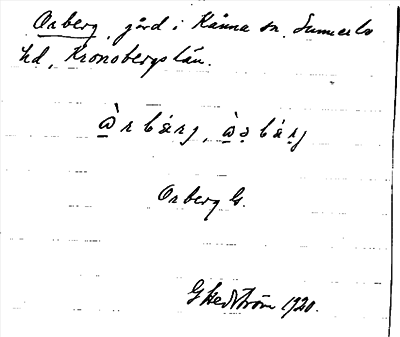 Orberg, gård i Kånna sn, Sunnerbo
hd, Kronobergs län.
Orberg G.
G Hedström 1920.